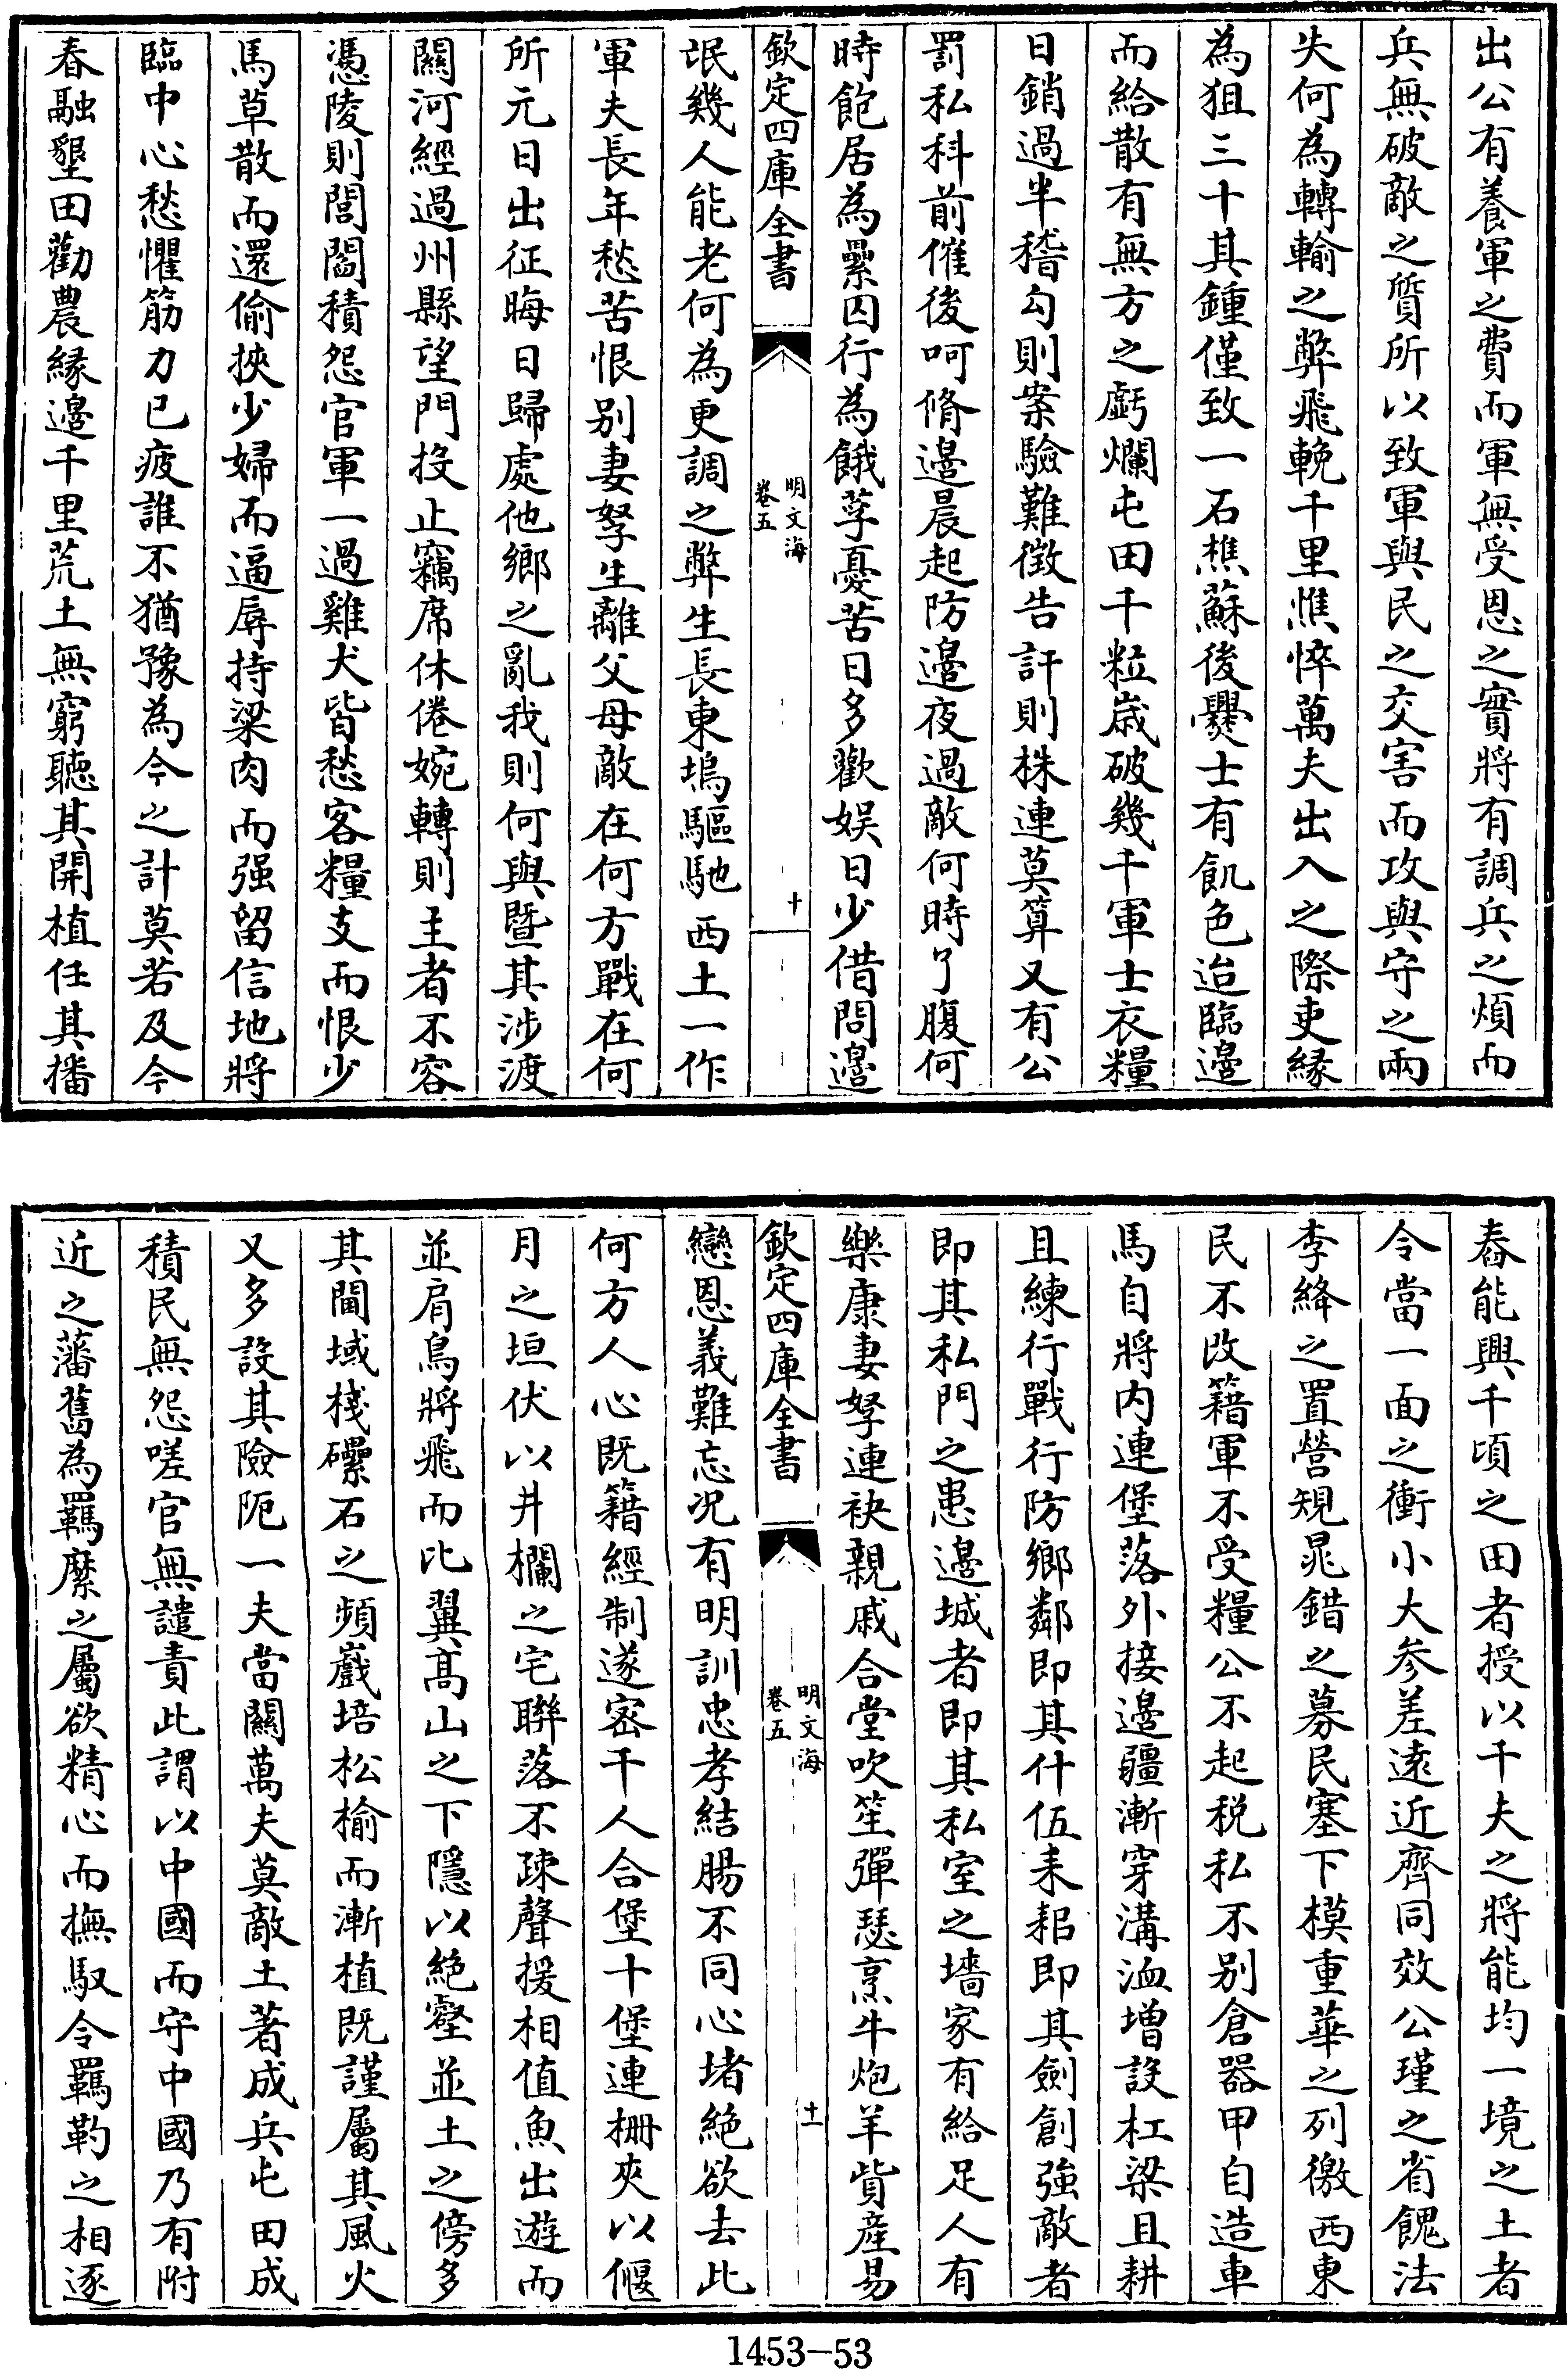 出公有養軍之費而軍無受恩之實將有調兵之煩而
兵無破敵之質所以致軍與民之交害而攻與守之兩
失何為轉輸之弊飛輓千里憔悴萬夫出入之際吏緣
為狙三十其鍾僅致一石樵蘇後爨士有飢色迨臨邊
而給散有無方之虧爛屯田千粒歳破幾千軍士衣糧
日銷過半稽勾則案驗難徴告訐則株連莫算又有公
罰私科前催後呵脩邊晨起防邊夜過敵何時了腹何
時飽居為纍囚行為餓莩憂苦日多歡娱日少借問邊
欽定四庫全書
明文海
卷五
十
氓幾人能老何為更調之弊生長東塢驅馳西土一作
軍夫長年愁苦恨别妻孥生離父母敵在何方戰在何
所元日出征晦日歸處他鄉之亂我則何與暨其涉渡
關河經過州縣望門投止竊席休倦婉轉則主者不容
憑陵則閭閻積怨官軍一過雞犬皆愁客糧支而恨少
馬草散而還偷挾少婦而逼辱持梁肉而强留信地將
臨中心愁懼筋力已疲誰不猶豫為今之計莫若及今
春融墾田勸農緣邊千里荒土無窮聽其開植任其播
舂能興千頃之田者授以千夫之將能均一境之土者
令當一面之衝小大参差逺近齊同效公瑾之省餽法
李絳之置營規鼂錯之募民塞下模重華之列徼西東
民不改籍軍不受糧公不起税私不别倉器甲自造車
馬自將内連堡落外接邊疆漸穿溝洫増設杠梁且耕
且練行戰行防鄉鄰即其什伍耒耜即其劍創強敵者
即其私門之患邊城者即其私室之墻家有給足人有
樂康妻孥連袂親戚合堂吹笙彈瑟烹牛炮羊貲産易
欽定四庫全書
明文海
卷五
十一
戀恩義難忘况有明訓忠孝結腸不同心堵絶欲去此
何方人心既籍經制遂宻千人合堡十堡連栅夾以偃
月之垣伏以井欄之宅聯落不疎聲援相值魚出遊而
並肩鳥將飛而比翼髙山之下隱以絶壑並土之傍多
其閫域棧礧石之頻嚱培松榆而漸植既謹屬其風火
又多設其險阨一夫當關萬夫莫敵土著成兵屯田成
積民無怨嗟官無譴責此謂以中國而守中國乃有附
近之藩舊為羈縻之屬欲精心而撫馭令羈靮之相逐
1453-53